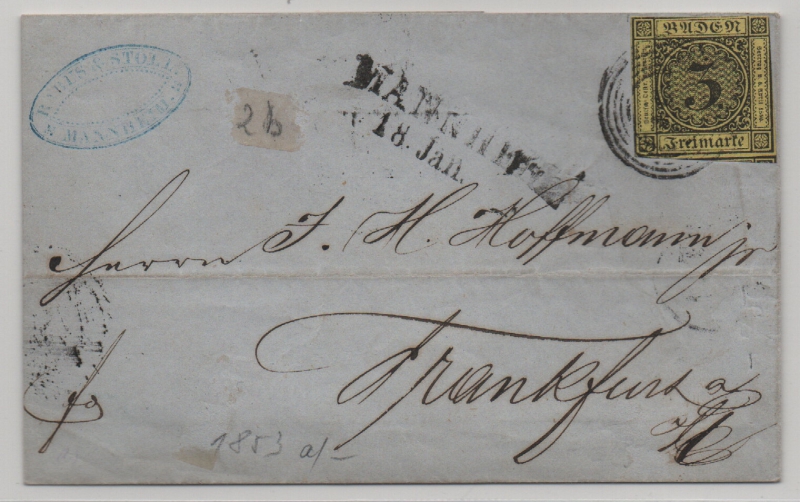 & STOLL
MANNHEIM
2b
MANNHEIM
18. Jan.
BADEN
3
Freimarke
Herrn J. H. Hoffmann jr
Frankfurt a/
M
fo
1853 a/-